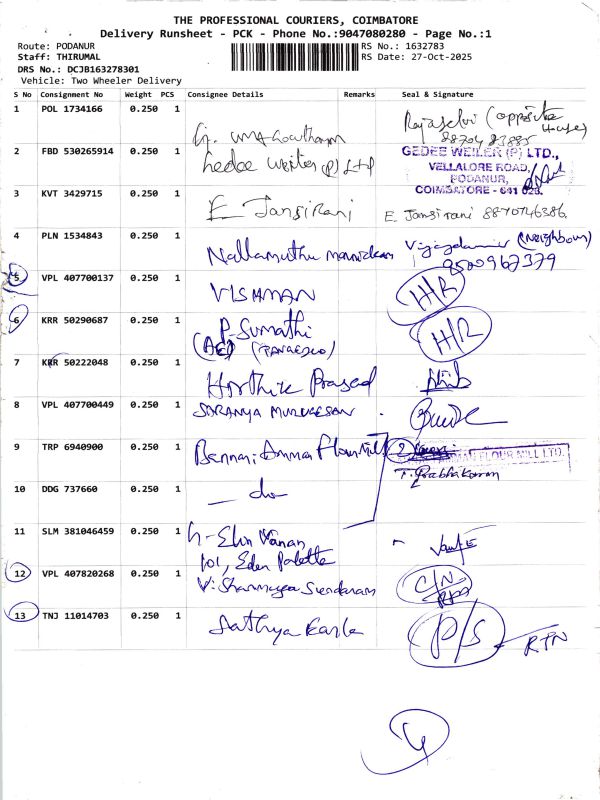 THE PROFESSIONAL COURIERS, COIMBATORE
Delivery Runsheet - PCK - Phone No.:9047080280 - Page No.:1
Route: PODANUR
RS No.: 1632783
Staff: THIRUMAL
RS Date: 27-Oct-2025
DRS No.: DCJB163278301
Vehicle: Two Wheeler Delivery
S No Consignment No Weight PCS Consignee Details Remarks Seal & Signature
1 POL 1734166 0.250 1 (opposite House)
2 FBD 530265914 0.250 1 Gedee Weiler (P) Ltd GEDEE WEILER (P) LTD.,
VELLALORE ROAD,
PODANUR,
COIMBATORE - 641 023.
3 KVT 3429715 0.250 1 E Jansi Rani E. Jansi rani 8870746386.
4 PLN 1534843 0.250 1 Nallamuthu (Neighbour)
5 VPL 407700137 0.250 1 VISHMAN H/R
6 KRR 50290687 0.250 1 P. Sumathi H/R
(AE) (TANGEDCO)
7 KRR 50222048 0.250 1 Prasad
8 VPL 407700449 0.250 1 SARANYA MURUGESAN
9 TRP 6940900 0.250 1 Bannari Amman Flour Mill 2 FLOUR MILL LTD.
T. Prabhakaran
10 DDG 737660 0.250 1 - do -
11 SLM 381046459 0.250 1
101, Eden
12 VPL 407820268 0.250 1 V. Shanmuga Sundaram C/N
13 TNJ 11014703 0.250 1 Sathya P/S RTN
4